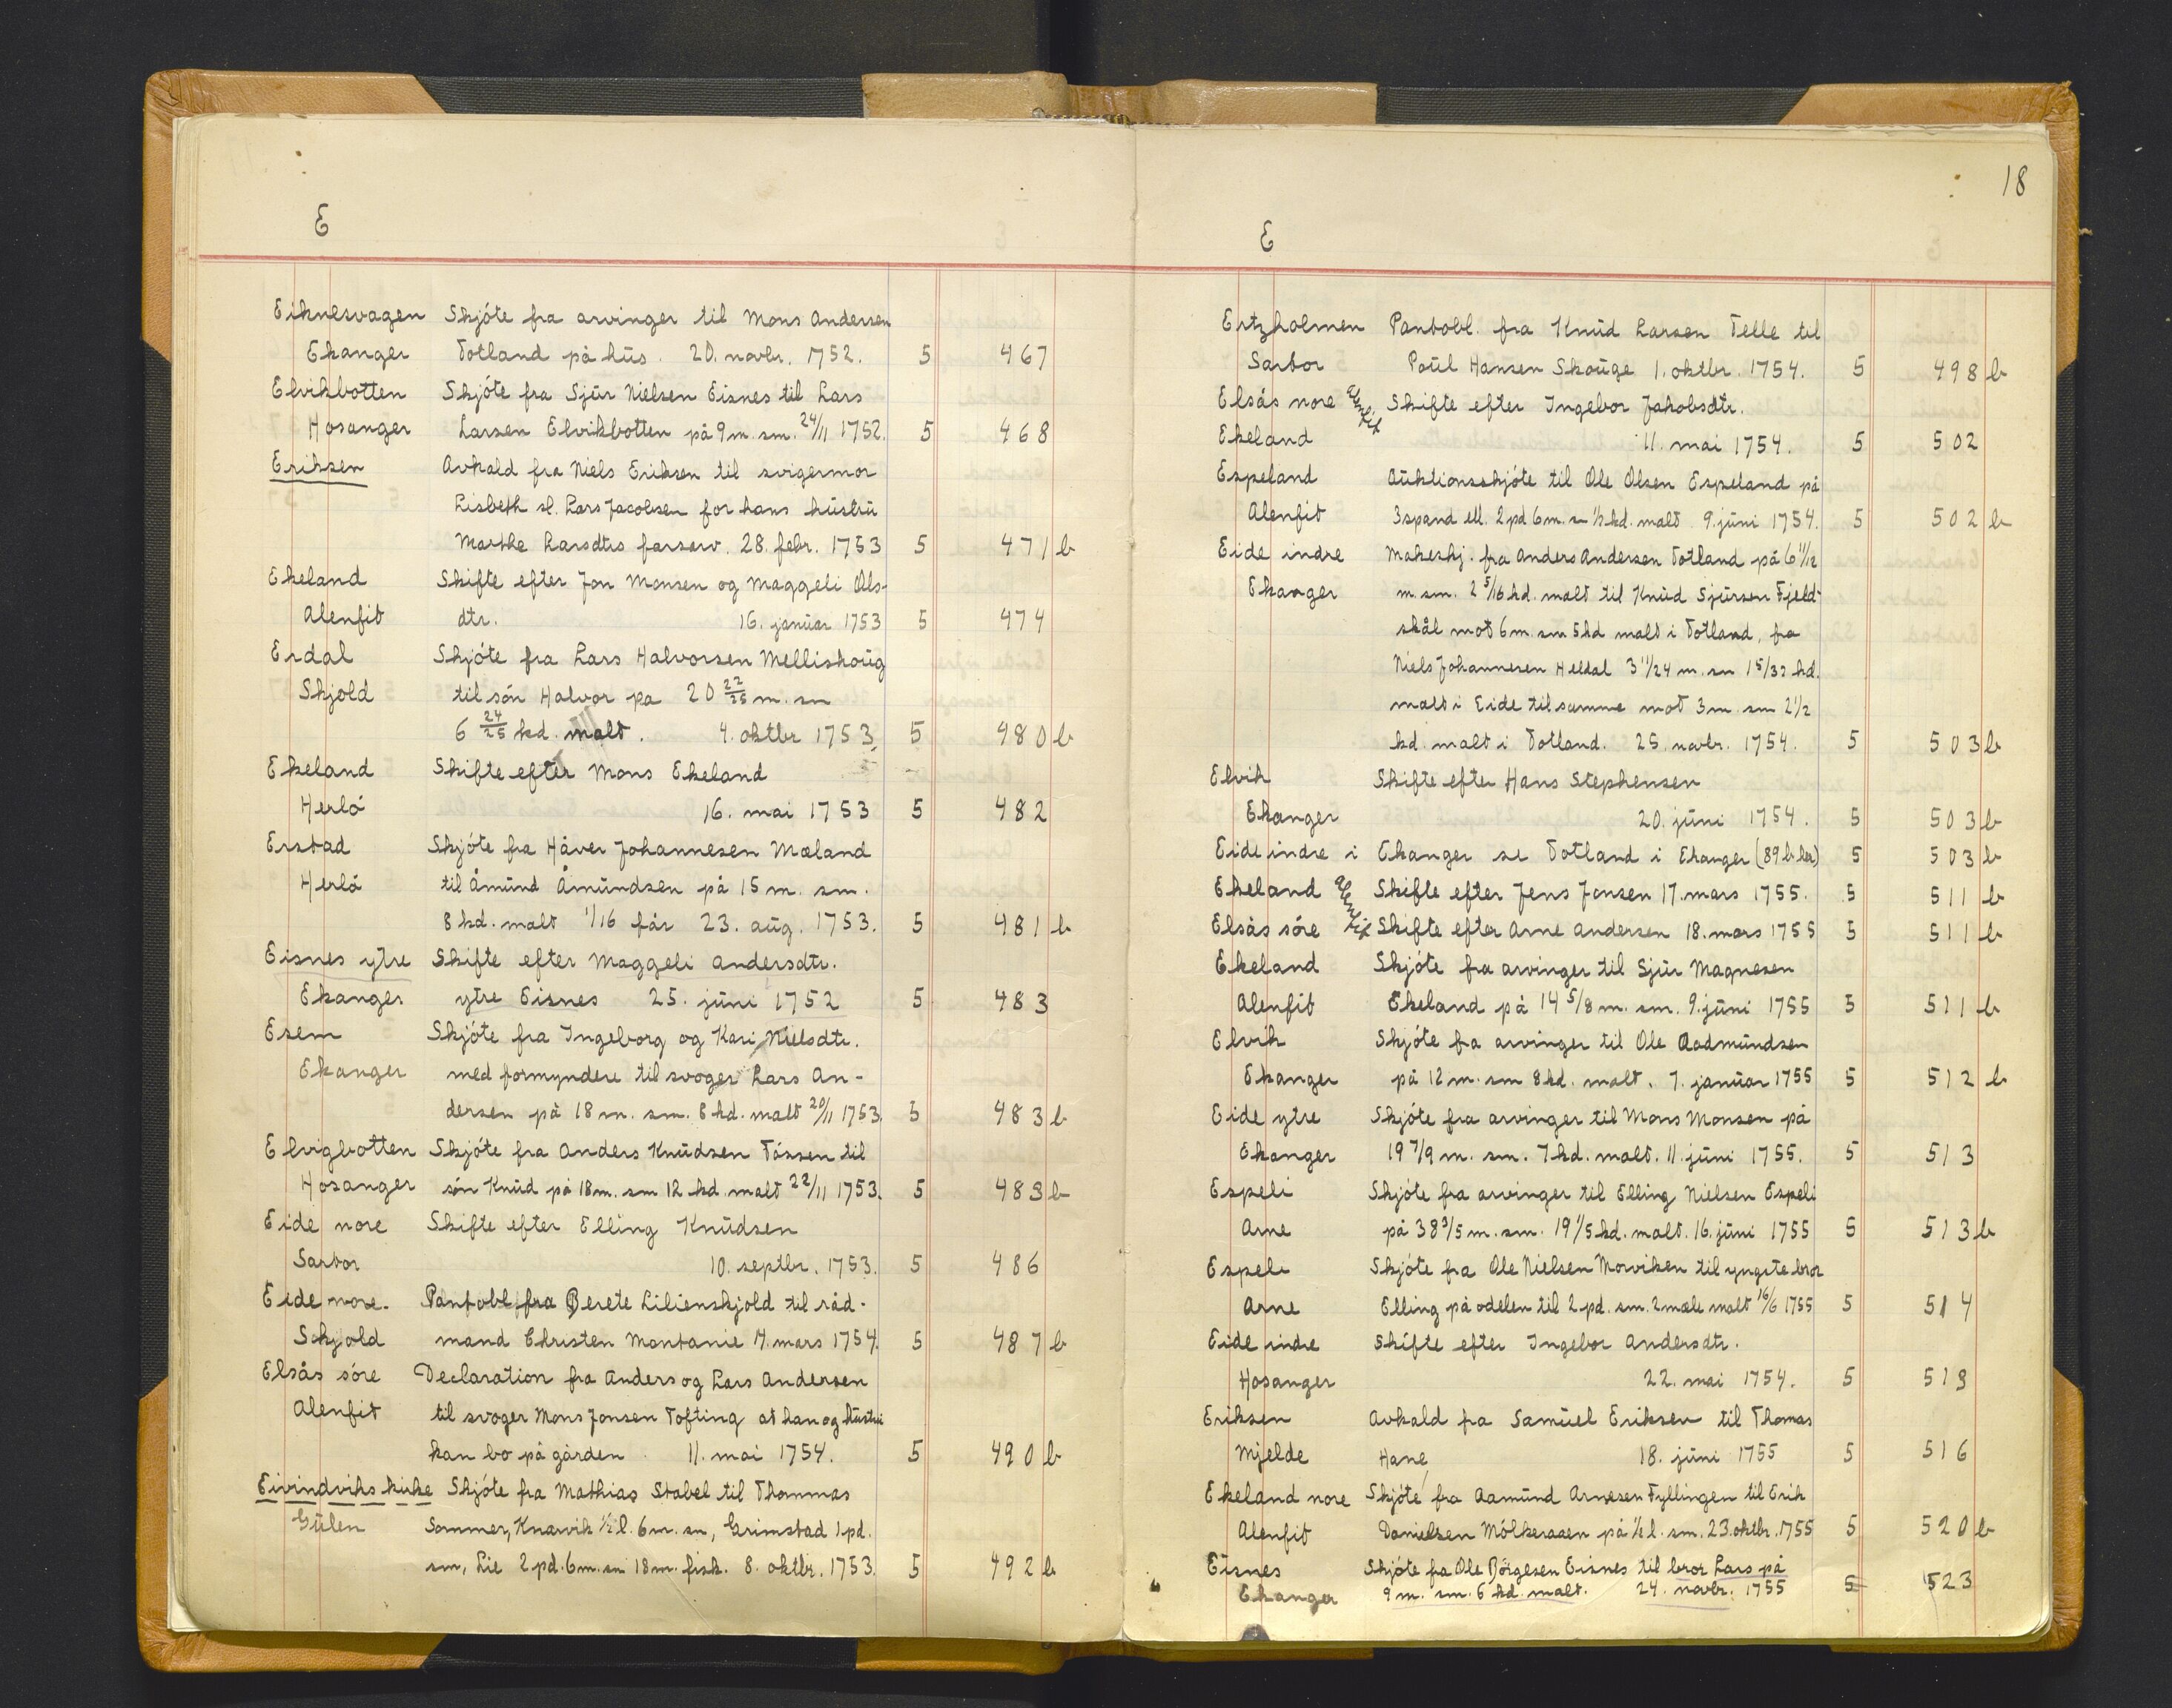 E
Eiknesvagen Skjóte fra arvinger til Mons Andersen
Ekanger Totland på hüs. 20. novbr. 1752. 5 467
Elvikbotten Skjóte fra Sjür Nielsen Eisnes til Lars
Hosanger Larsen Elvikbotten på 9 m. sm. 24/11 1752. 5 468
Eriksen Avkald fra Niels Eriksen til svigermor
Lisbeth sl. Lars Jacobsen for hans hüstrü
Marthe Larsdtrs farsarv. 28. febr. 1753 5 471 b
Ekeland Skifte efter Jon Monsen og Maggeli Ols-
Alenfit dtr. 16. janüar 1753 5 474
Erdal Skjóte fra Lars Halvorsen Melliskoüg
Skjold til són Halvor pa 20 22/25 m. sm
6 24/25 kd. malt. 4. oktbr 1753, 5 480 b
Ekeland Skifte efter Mons Ekeland
Herló 16. mai 1753 5 482
Erstad Skjóte fra Håver Johannesen Mæland
Herló til Åmünd Åmündsen på 15 m. sm.
8 kd. malt 1/16 fár 23. aüg. 1753. 5 481 b
Eisnes ytre Skifte efter Maggeli Andersdtr.
Ekanger ytre Eisnes 25. jüni 1752 5 483
Esem Skjóte fra Ingeborg og Kari Nielsdtr.
Ekanger med formyndere til svoger Lars An-
dersen på 18 m. sm. 8 kd. malt 20/11 1753. 5 483 b
Elvigbotten Skjóte fra Anders Knüdsen Tóssen til
Hosanger són Knüd på 18 m. sm 12 kd. malt 22/11 1753. 5 483 b
Eide nore Skifte efter Elling Knüdsen
Sartor 10. septbr. 1753. 5 486
Eide nore. Pantobl. fra Berete Lilienskjold til råd-
Skjold mand Christen Montanie 17. mars 1754. 5 487 b
Elsås sóre Declaration fra Anders og Lars Andersen
Alenfit til svoger Mons Jonsen Tofting at han og hüstrü
kan bo på gården 11. mai 1754. 5 490 b
Eivindviks kirke Skjóte fra Mathias Stabel til Thommas
Gülen Sommer, Knarvik ½ l. 6 m. sm, Grimstad 1 pd.
sm, Lie 2 pd. 6 m. sm 18 m. fisk. 8. oktbr. 1753. 5 492 b
18
E
Ertzholmen Pantobl. fra Knüd Larsen Telle til
Sartor Poül Hansen Skoüge 1. oktbr. 1754. 5 498 b
Elsås nore Alenfit Skifte efter Ingebor Jakobsdtr.
Ekeland 11. mai 1754. 5 502
Espeland Aüktionsskjóte til Ole Olsen Espeland på
Alenfit 3 spand ell. 2 pd 6 m. sm ½ kd. malt 9. jüni 1754. 5 502 b
Eide indre Makeskj. fra Anders Andersen Totland på 6 11/12
Ekanger m. sm. 2 5/16 kd. malt til Knüd Sjürsen Fjeld-
skål mot 6 m. sm 5 kd malt i Totland, fra
Niels Johannesen Heldal 3 11/24 m. sm 1 5/32 kd.
malt i Eide til samme mot 3 m. sm 2½
kd. malt i Totland. 25. novbr. 1754. 5 503 b
Elvik Skifte efter Hans Stephensen
Ekanger 20. jüni 1754. 5 503 b
Eide indre i Ekanger se Totland i Ekanger (89 b her) 5 503 b
Ekeland Alenfit Skifte efter Jens Jonsen 17. mars 1755. 5 511 b
Elsås sóre Skifte efter Arne Andersen 18. mars 1755 5 511 b
Ekeland Skjóte fra arvinger til Sjür Magnesen
Alenfit Ekeland på 14 5/8 m. sm. 9. jüni 1755 5 511 b
Elvik Skjóte fra arvinger til Ole Aadmündsen
Ekanger på 12 m. sm 8 kd. malt. 7. janüar 1755 5 512 b
Eide ytre Skjóte fra arvinger til Mons Monsen på
Ekanger 19 7/9 m. sm. 7 kd. malt. 11. jüni 1755. 5 513
Espeli Skjóte fra arvinger til Elling Nielsen Espeli
Arne på 38 3/5 m. sm. 19 1/5 kd. malt. 16. jüni 1755 5 513 b
Espeli Skjóte fra Ole Nielsen Morviken til yngste bror
Arne Elling på odelen til 2 pd. sm. 2 mæle malt 16/6 1755 5 514
Eide indre Skifte efter Ingebor Andersdtr.
Hosanger 22. mai 1754. 5 519
Eriksen Avkald fra Samüel Eriksen til Thomas
Mjelde Hane 18. jüni 1755 5 516
Ekeland nore Skjóte fra Aamünd Arnesen Fyllingen til Erik
Alenfit Danielsen Mólkeraaen på ½ l. sm. 23. oktbr. 1755 5 520 b
Eisnes Skjóte fra Ole Börgesen Eisnes til bror Lars på
Ekanger 9 m. sm. 6 kd. malt. 24. novbr. 1755 5 523